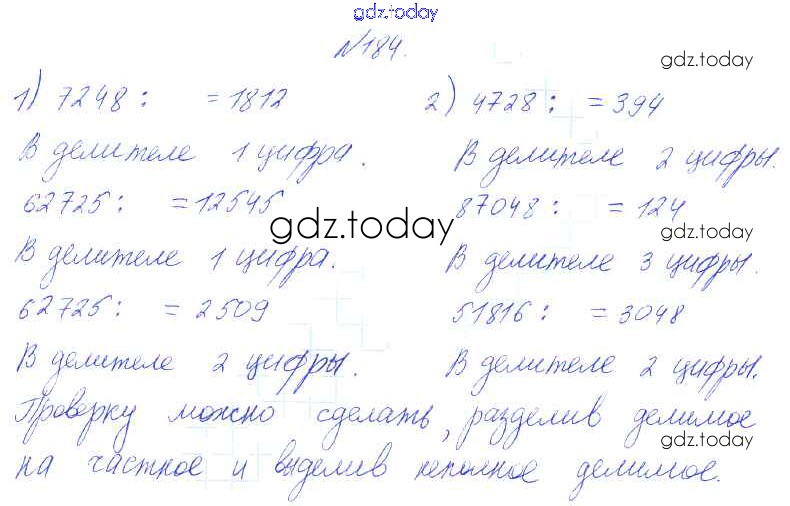 gdz.today
№184.
gdz.today
1) 7248 : = 1812 2) 4728 : = 394
В делителе 1 цифра. В делителе 2 цифры.
gdz.today
62725 : = 12545 87048 : = 124
gdz.today
gdz.today
В делителе 1 цифра. В делителе 3 цифры.
62725 : = 2509 51816 : = 3048
gdz.today
В делителе 2 цифры. В делителе 2 цифры.
Проверку можно сделать, разделив делимое
gdz.today
на частное и выделив неполное делимое.